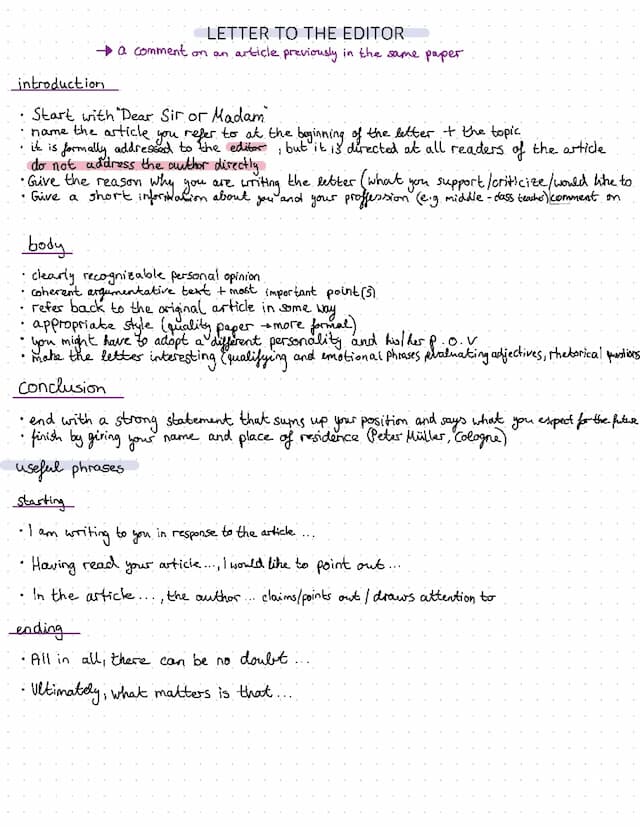 LETTER TO THE EDITOR
→ a comment on an article previously in the same paper
introduction
· Start with "Dear Sir or Madam"
· name the article you refer to at the beginning of the letter + the topic
· it is formally addressed to the editor, but it is directed at all readers of the article
do not address the author directly
· Give the reason why you are writing the letter (what you support/criticize/would like to
· Give a short information about you and your profession (e.g middle-class teacher) comment on
body
· clearly recognizable personal opinion
· coherent argumentative text + most important point(s)
· refer back to the original article in some way
· appropriate style (quality paper → more formal)
· you might have to adopt a different personality and his/her P.O.V
· make the letter interesting (qualifying and emotional phrases, evaluating adjectives, rhetorical questions
conclusion
· end with a strong statement that sums up your position and says what you expect for the future
· finish by giving your name and place of residence (Peter Müller, Cologne)
useful phrases
starting
· I am writing to you in response to the article ...
· Having read your article..., I would like to point out...
· In the article ..., the author ... claims/points out / draws attention to
ending
· All in all, there can be no doubt ...
· Ultimately, what matters is that ...